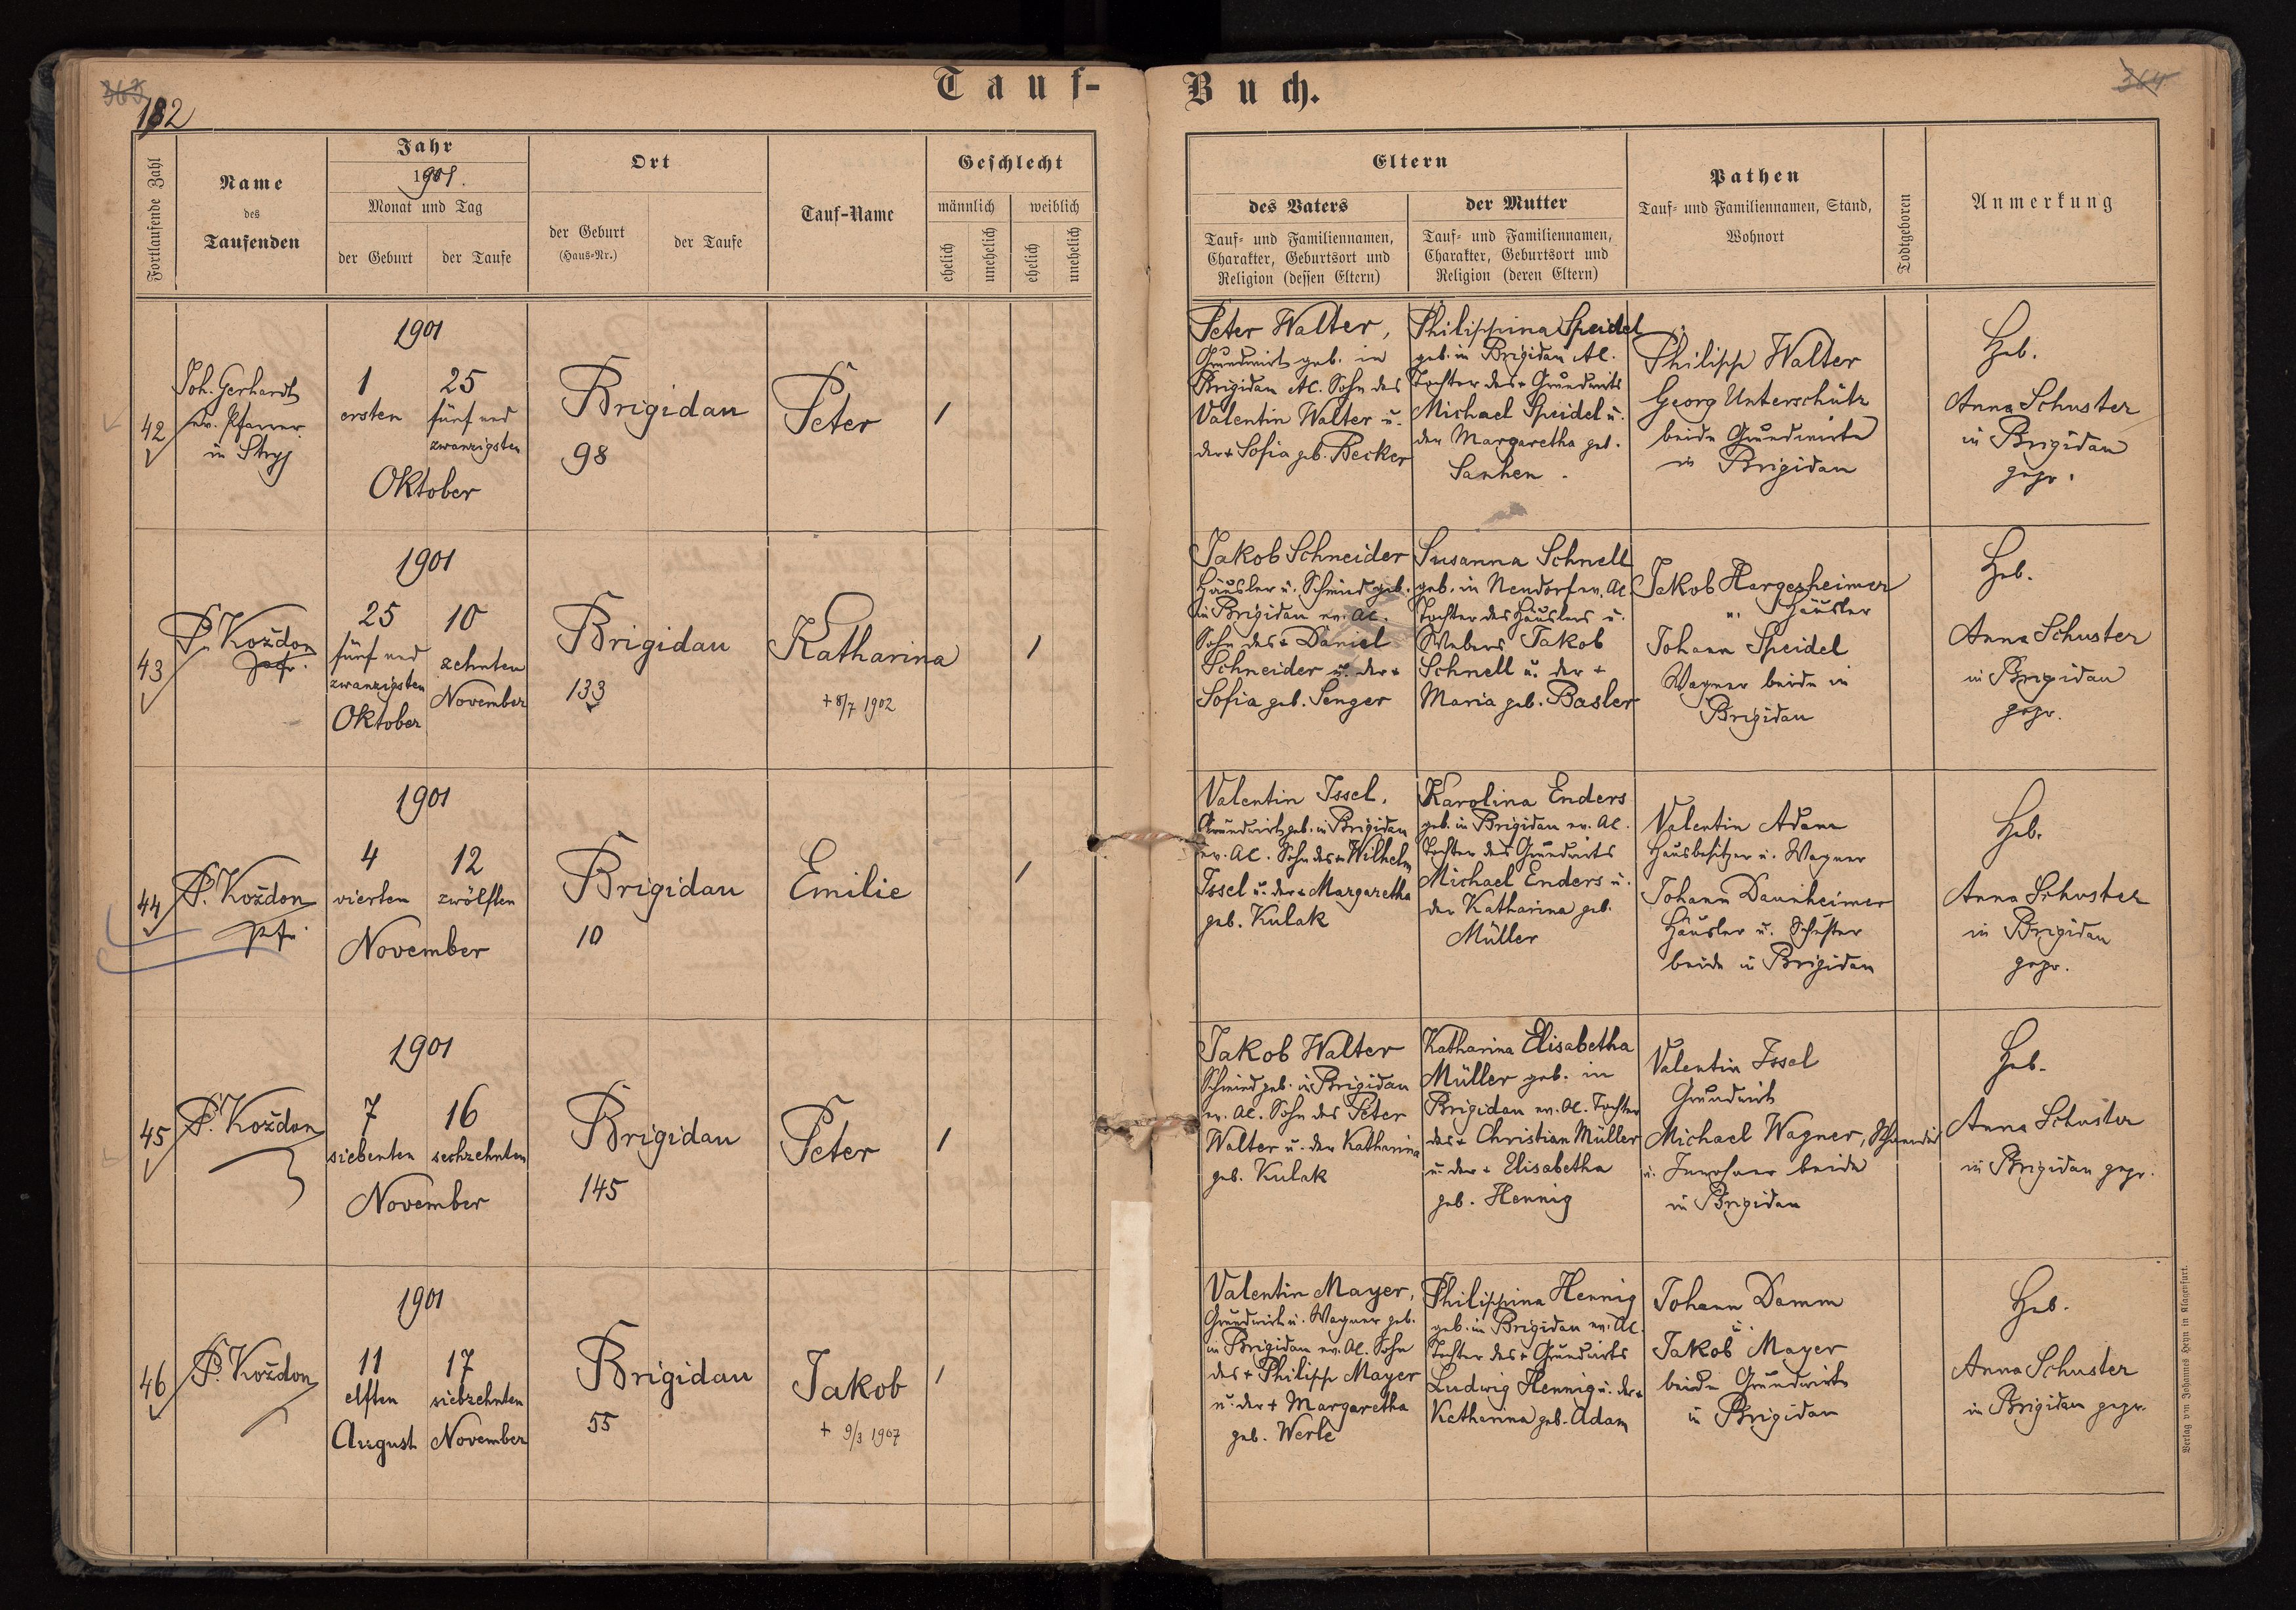 363
182
Tauf-
Buch.
364
Fortlaufende Zahl
Name
des
Taufenden
Jahr
1901.
Monat und Tag
der Geburt
der Taufe
Ort
der Geburt
(Haus-Nr.)
der Taufe
Tauf-Name
Geschlecht
männlich
weiblich
ehelich
unehelich
ehelich
unehelich
Eltern
des Vaters
Tauf- und Familiennamen,
Charakter, Geburtsort und
Religion (dessen Eltern)
der Mutter
Tauf- und Familiennamen,
Charakter, Geburtsort und
Religion (deren Eltern)
Pathen
Tauf- und Familiennamen, Stand,
Wohnort
Todtgeboren
Anmerkung
42
Joh. Gerhardt
ev. Pfarrer
in Stryj
1901
1
ersten
25
fünf und
zwanzigsten
Oktober
Brigidau
98
Peter
1
Peter Walter,
Grundwirt geb. in
Brigidau AC. Sohn des
Valentin Walter u.
der + Sofia geb. Becker
Philippina Speidel
geb. in Brigidau AC.
Tochter des + Grundwirts
Michael Speidel u.
der Margaretha geb.
Philipp Walter
Georg Unterschütz
beide Grundwirte
in Brigidau
Heb.
Anna Schuster
in Brigidau
gepr.
43
P. Koždon
Pfr.
1901
25
fünf und
zwanzigsten
Oktober
10
zehnten
November
Brigidau
133
Katharina
+ 8/7 1902
1
Jakob Schneider
Häusler u. Schmied geb.
in Brigidau ev. AC.
Sohn des + Daniel
Schneider u. der +
Sofia geb. Senger
Susanna Schnell
geb. in Neudorf ev. AC
Tochter des Häuslers u.
Webers Jakob
Schnell u. der +
Maria geb. Basler
Jakob Hargesheimer
u. Häusler
Johann Speidel
Wagner beide in
Brigidau
Heb.
Anna Schuster
in Brigidau
gepr.
44
P. Koždon
Pfr.
1901
4
vierten
12
zwölften
November
Brigidau
10
Emilie
1
Valentin Issel,
Grundwirt geb. in Brigidau
ev. AC. Sohn des + Wilhelm
Issel u. der + Margaretha
geb. Kulak
Karolina Enders
geb. in Brigidau ev. AC.
Tochter des Grundwirts
Michael Enders u.
der Katharina geb.
Müller
Valentin Adam
Hausbesitzer u. Wagner
Johann Daunheimer
Häusler u. Schuster
beide in Brigidau
Heb.
Anna Schuster
in Brigidau
gepr.
45
P. Koždon
1901
7
siebenten
16
sechzehnten
November
Brigidau
145
Peter
1
Jakob Walter
Schmied geb. in Brigidau
ev. AC. Sohn des Peter
Walter u. der Katharina
geb. Kulak
Katharina Elisabetha
Müller geb. in
Brigidau ev. AC. Tochter
des + Christian Müller
u. der + Elisabetha
geb. Hennig
Valentin Issel
Grundwirt
Michael Wagner, Schneider
u. Inwohner beide
in Brigidau
Heb.
Anna Schuster
in Brigidau gepr.
46
P. Koždon
1901
11
elften
August
17
siebzehnten
November
Brigidau
55
Jakob
+ 9/3 1907
1
Valentin Mayer,
Grundwirt u. Wagner geb.
in Brigidau ev. AC. Sohn
des + Philipp Mayer
u. der + Margaretha
geb. Werle
Philippina Hennig
geb. in Brigidau ev. AC.
Tochter des + Grundwirts
Ludwig Hennig u. der +
Katharina geb. Adam
Johann Damm
u.
Jakob Mayer
beide Grundwirte
in Brigidau
Heb.
Anna Schuster
in Brigidau gepr.
Verlag von Johannes Heyn in Klagenfurt.